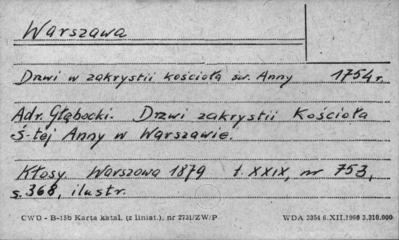 Warszawa
Drzwi w zakrystii kościoła św. Anny 1754 r.
Adr. Głębocki. Drzwi zakrystii Kościoła
ś-tej Anny w Warszawie.
Kłosy. Warszawa 1879 t. XXIX, nr 753,
s. 368, ilustr.
CWD - B-15b Karta katal. (z liniat.), nr 2731/ZW/P WDA 2354 6.XII.1960 3.210.000